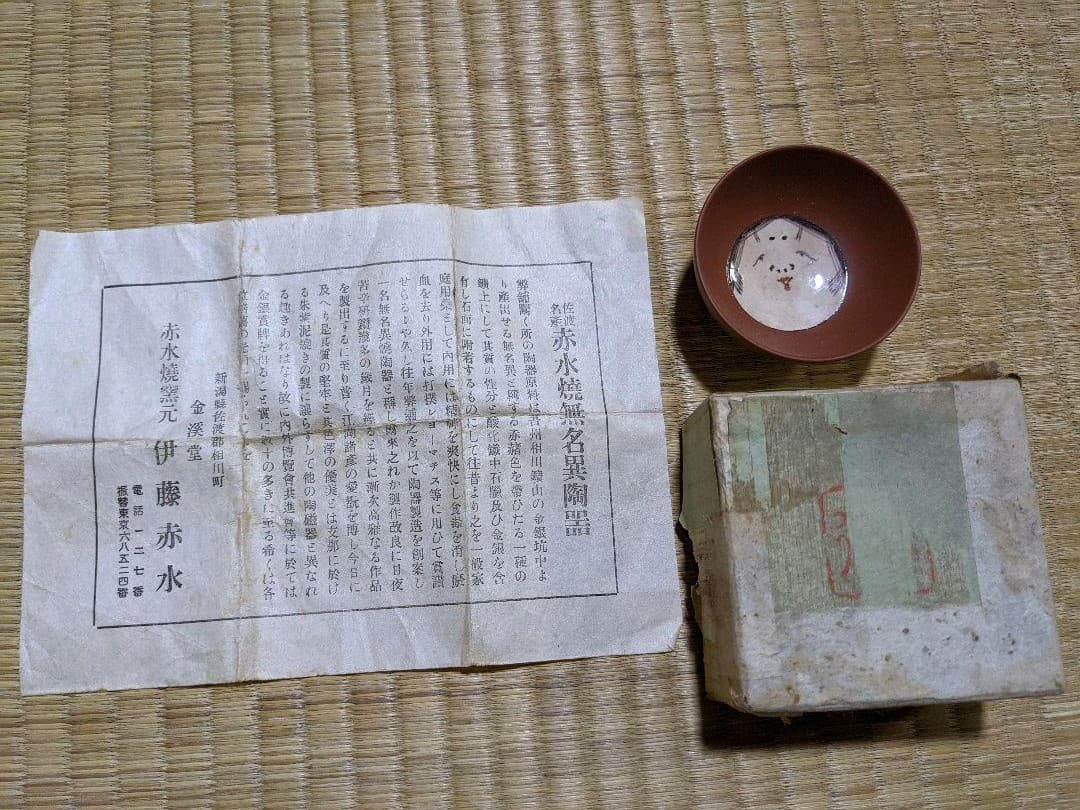 佐渡
名産
赤水燒無名異陶器
弊窯製く所の陶器原料は吾州相川鑛山の金銀坑中よ
り産出せる無名異と稱する赤赭色を帶びたる一種の
鑛土にして其質の性分と酸化鐵中石膽及び金銀を含
有し石間に附着するものにして往昔より之を一般家
庭用藥として内用には精神を爽快にし食毒を消し瘀
血を去り外用には打撲レヨーマチス等に用ひて賞讃
せらるゝや久し往年弊窯之を以て陶器製造を創案し
一名無名異燒陶器と稱し爾來之れが製作改良に日夜
苦辛研鑽幾多の歳月を經ると共に漸次高雅なる作品
を製出するに至り普く江湖諸彦の愛翫を博し今日に
及へり是其質の堅牢と其色澤の優美とは支那に於け
る朱紫泥燒きの製に讓らずして他の陶磁器と異なれ
る趣きあればなり故に内外博覽會共進會等に於ては
金銀賞牌を得ること實に數十の多きに至る希くは各
新潟縣佐渡郡相川町
金溪堂
赤水燒窯元 伊藤赤水
電話一二七番
振替東京六八五二四番